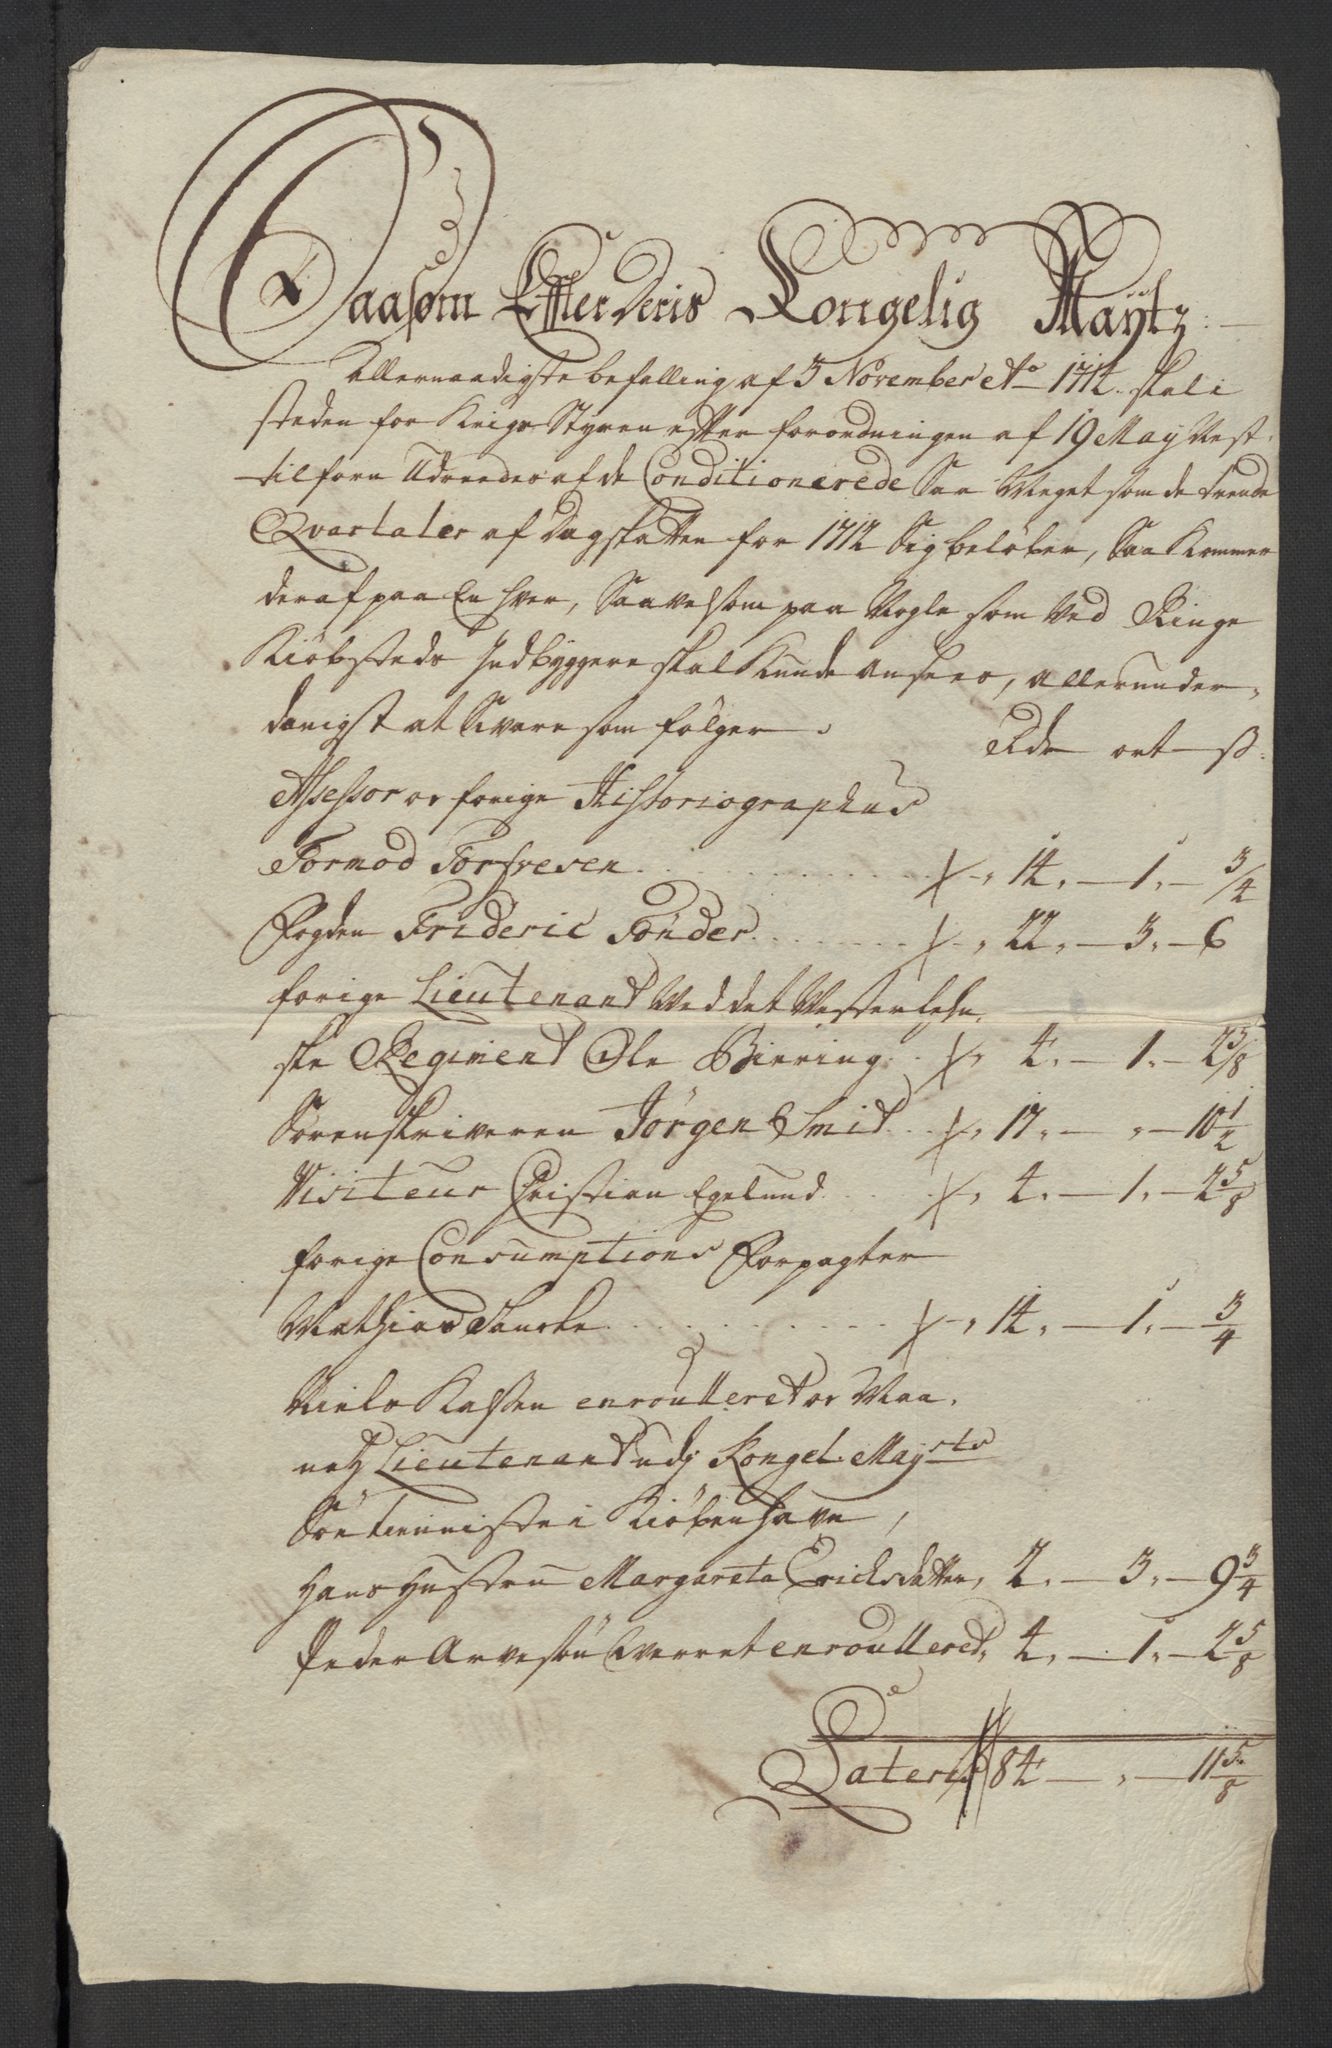 Saasom Effter Deris Kongelig Mäÿtz:
Allernaadigste befalling af 5 November Ao 1712. skal i
steden for Krigs Styren efter forordningen af 19 May Nest
tilforn Udreedes af de Conditionerede Saa Meget som de trende
Qvartaler af Dagskatten for 1712 Sig beløber, Saa Kommer
deraf paa En hver, Saavelsom paa Nogle som Ved Ringe
Kiöbsteds Indbyggere skal Kunde ansees, allerunder-
danigst at Svare som fölger.
Rdr ort ß.
Assessor og forige Historiographus
Tormod Torfvesen 14. 1. 3/4
Fogden Frideric Tönder 22. 3. 6
forige Lieutenant Ved det Vesterlehn-
ske Regiment Ole Bierring 4. 1. 2 5/8
Sörenskriveren Jörgen Smid 17. " 10 1/2
Visiteur Christian Egelund 4. 1. 2 5/8
forige Consumptions Forpagter
Mathias Taucke 14. 1. 3/4
Niels Kassen enroulleret og Maa-
netz Lieutenant udj Kongel. Maysts
Söe tienniste i Kiöbenhavn,
Hans Hustru Margareta Erichsdatter, 2. 3. 9 3/4
Peder Arvesön Qverret enroulleret, 4. 1. 2 5/8
Lateris 84 " 11 5/8